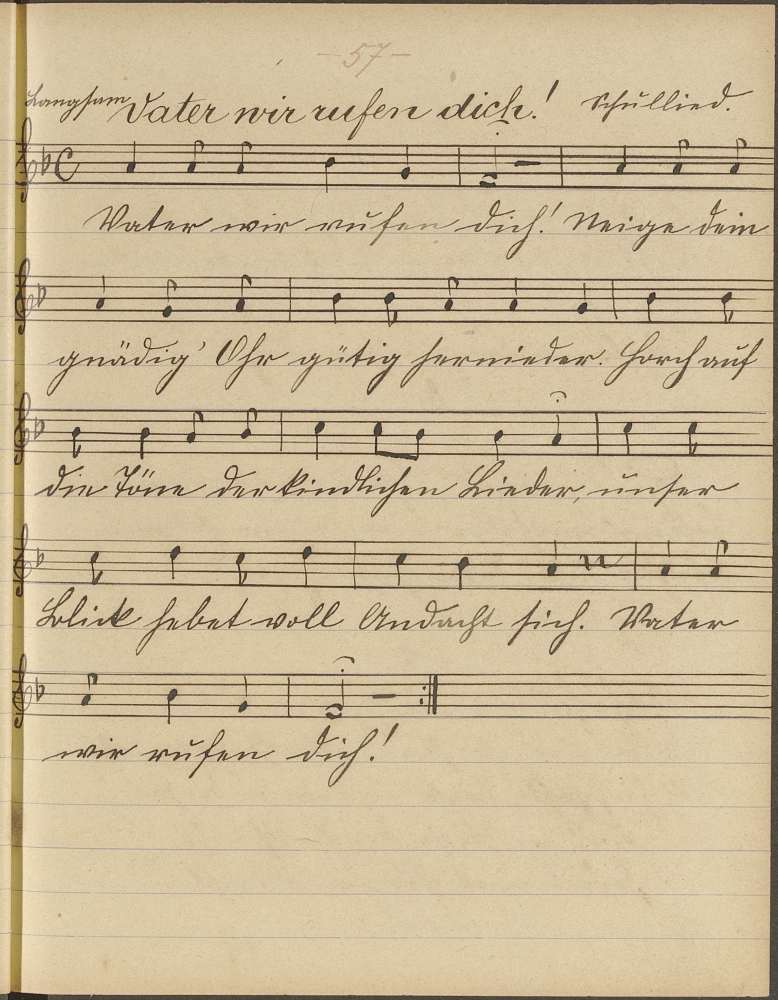 – 57 –
Langsam Vater wir rufen dich! Schullied.
Vater wir rufen dich! Neige dein
gnädig' Ohr gütig hernieder. Horch auf
die Töne der kindlichen Lieder, unser
Blick hebet voll Andacht sich. Vater
wir rufen dich!